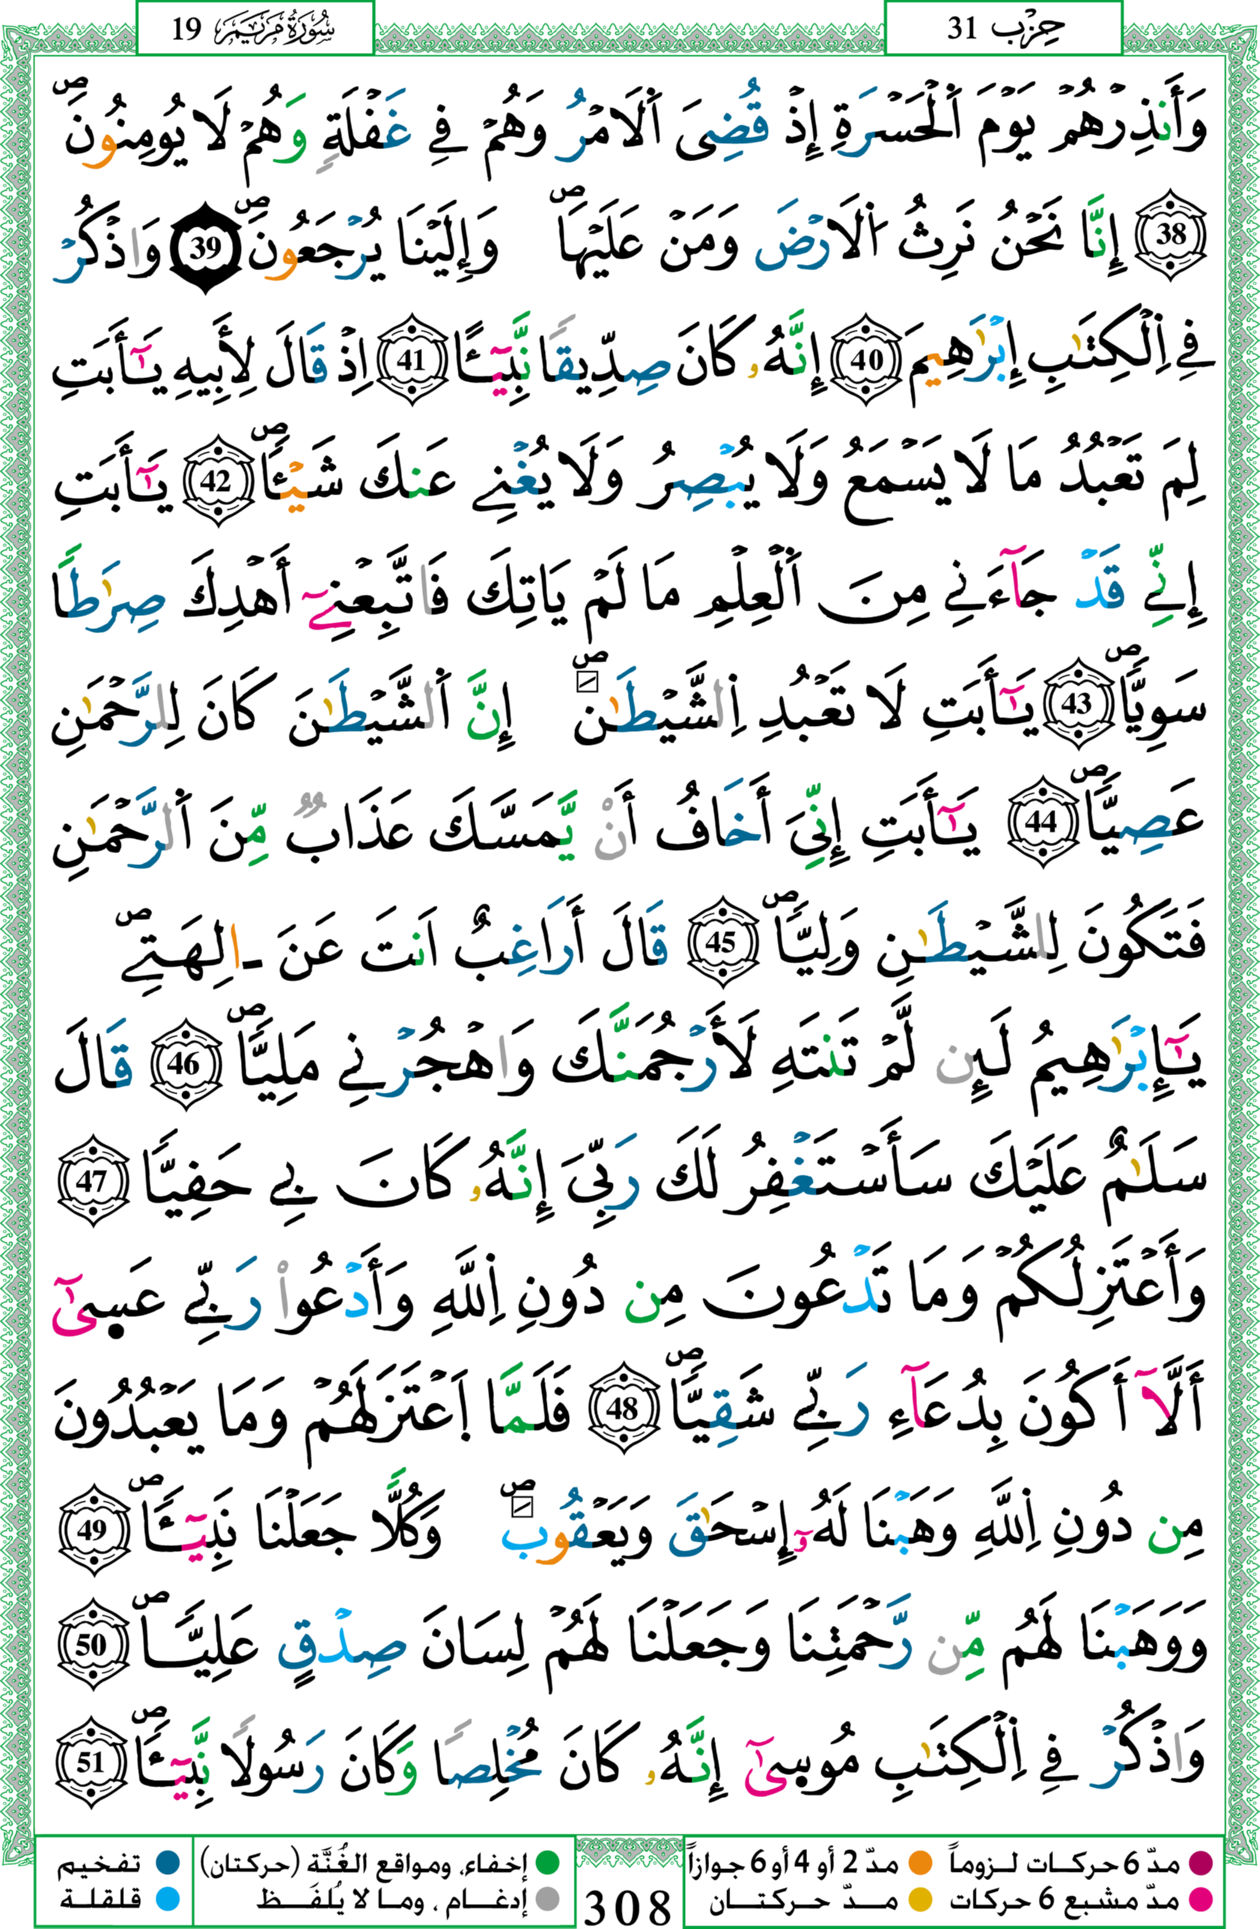 سُورَةُ مَرْيَم 19
حِزْب 31
وَأَنذِرْهُمْ يَوْمَ اَ۬لْحَسْرَةِ إِذْ قُضِيَ اَ۬لَامْرُ وَهُمْ فِے غَفْلَةٖ وَهُمْ لَا يُومِنُونَۖ
38 إِنَّا نَحْنُ نَرِثُ اُ۬لَارْضَ وَمَنْ عَلَيْهَاۖ وَإِلَيْنَا يُرْجَعُونَۖ 39 وَاذْكُرْ
فِے اِ۬لْكِتَٰبِ إِبْرَٰهِيمَ 40 إِنَّهُۥ كَانَ صِدِّيقاٗ نَّبِيٓـٔاً 41 اِذْ قَالَ لِأَبِيهِ يَٰٓأَبَتِ
لِمَ تَعْبُدُ مَا لَا يَسْمَعُ وَلَا يُبْصِرُ وَلَا يُغْنِے عَنكَ شَيْـٔاًۖ 42 يَٰٓأَبَتِ
إِنِّے قَدْ جَآءَنِے مِنَ اَ۬لْعِلْمِ مَا لَمْ يَاتِكَ فَاتَّبِعْنِےٓ أَهْدِكَ صِرَٰطاٗ
سَوِيّاٗۖ 43 يَٰٓأَبَتِ لَا تَعْبُدِ اِ۬لشَّيْطَٰنَۖ إِنَّ اَ۬لشَّيْطَٰنَ كَانَ لِلرَّحْمَٰنِ
عَصِيّاٗۖ 44 يَٰٓأَبَتِ إِنِّيَ أَخَافُ أَنْ يَّمَسَّكَ عَذَابٞ مِّنَ اَ۬لرَّحْمَٰنِ
فَتَكُونَ لِلشَّيْطَٰنِ وَلِيّاٗۖ 45 قَالَ أَرَاغِبٌ اَنتَ عَنَ ـ اٰلِهَتِےۖ
يَٰٓإِبْرَٰهِيمُ لَئِن لَّمْ تَنتَهِ لَأَرْجُمَنَّكَ وَاهْجُرْنِے مَلِيّاٗۖ 46 قَالَ
سَلَٰمٌ عَلَيْكَ سَأَسْتَغْفِرُ لَكَ رَبِّيَ إِنَّهُۥ كَانَ بِے حَفِيّاٗ 47
وَأَعْتَزِلُكُمْ وَمَا تَدْعُونَ مِن دُونِ اِ۬للَّهِ وَأَدْعُواْ رَبِّے عَس۪يٰٓ
أَلَّآ أَكُونَ بِدُعَآءِ رَبِّے شَقِيّاٗۖ 48 فَلَمَّا اَ۪عْتَزَلَهُمْ وَمَا يَعْبُدُونَ
مِن دُونِ اِ۬للَّهِ وَهَبْنَا لَهُۥٓ إِسْحَٰقَ وَيَعْقُوبَۖ وَكُلّاٗ جَعَلْنَا نَبِيٓـٔاٗۖ 49
وَوَهَبْنَا لَهُم مِّن رَّحْمَتِنَا وَجَعَلْنَا لَهُمْ لِسَانَ صِدْقٍ عَلِيّاٗۖ 50
وَاذْكُرْ فِے اِ۬لْكِتَٰبِ مُوس۪يٰٓ إِنَّهُۥ كَانَ مُخْلِصاٗ وَكَانَ رَسُولاٗ نَّبِيٓـٔاٗۖ 51
مدّ 6 حركات لـزوماً
مدّ 2 أو 4 أو 6 جوازاً
إخفاء، ومواقع الغُنَّة (حركتان)
تفخيم
مدّ مشبع 6 حركات
مدّ حركتان
إدغام ، وما لا يُلفَظ
قلقلة
308